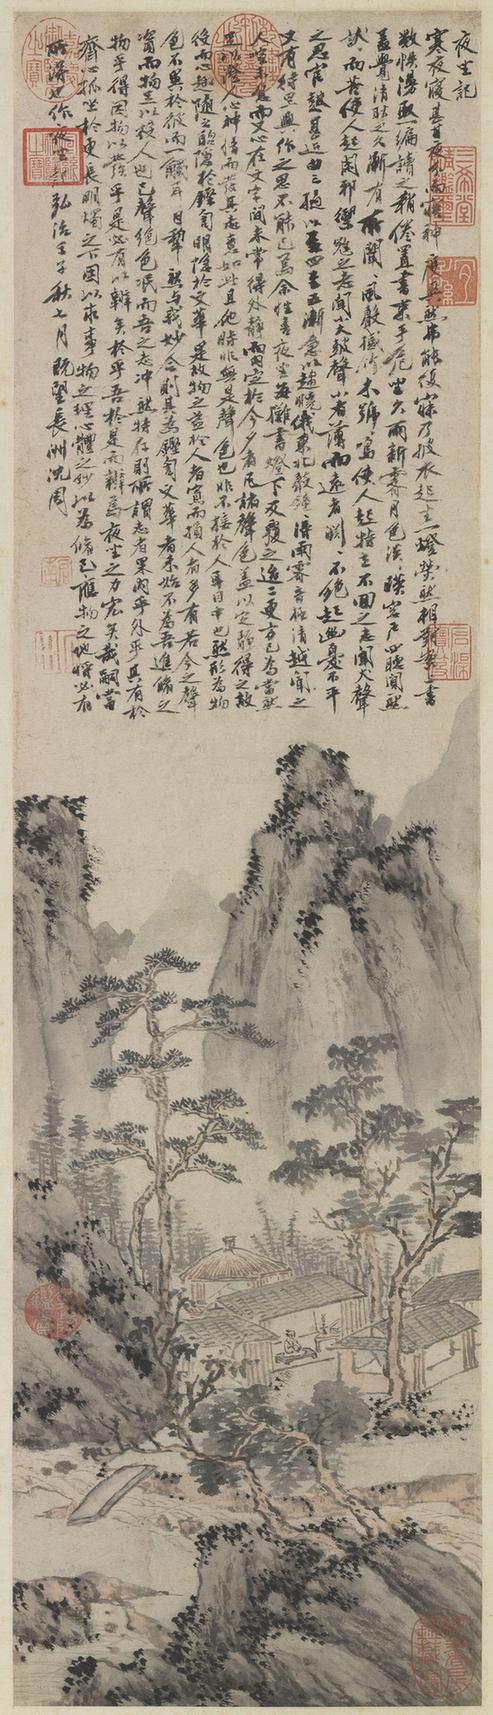 夜坐記
寒夜寢甚甘夜分而寤神度爽然弗能復寐乃披衣起坐一燈熒然相對案上書
數帙漫取一編讀之稍倦置書束手危坐久雨新霽月色淡淡映窗戶四聽闃然
蓋覺清耿之久漸有所聞聞風聲撼竹木號號鳴使人起特立不回之志聞犬聲
狺狺而苦使人起閑邪禦寇之志聞小大鼓聲小者薄而遠者淵淵不絕起幽憂不平
之思官鼓甚近由三撾以至四至五漸急以趨曉俄東北聲鐘鐘得雨霽音極清越聞之
又有待旦興作之思不能已焉余性喜夜坐每攤書燈下反覆之迨二更方已為當然
人喧未息而又心在文字間未嘗得外靜而內定於今夕者凡諸聲色蓋以定靜得之故
足以澄人心神情而發其志意如此且他時非無是聲色也非不接於人耳目中也然形為物
役而心趣隨之聰隱於鏗訇明隱於文華是故物之益於人者寡而損人者多有若今之聲
色不異於彼而一觸耳目犁然與我妙合則其為鏗訇文華者未始不為吾進修之
資而物足以役人也已聲絕色泯而吾之志冲然特存則所謂志者果內乎外乎其有於
物乎得因物以發乎是必有以辨矣於乎吾於是而辨焉夜坐之力宏矣哉嗣當
齋心孤坐於更長明燭之下因以求事物之理心體之妙以為修己應物之地將必有
所得也作夜坐記弘治壬子秋七月既望長洲沈周
三希堂精鑑璽
宜子孫